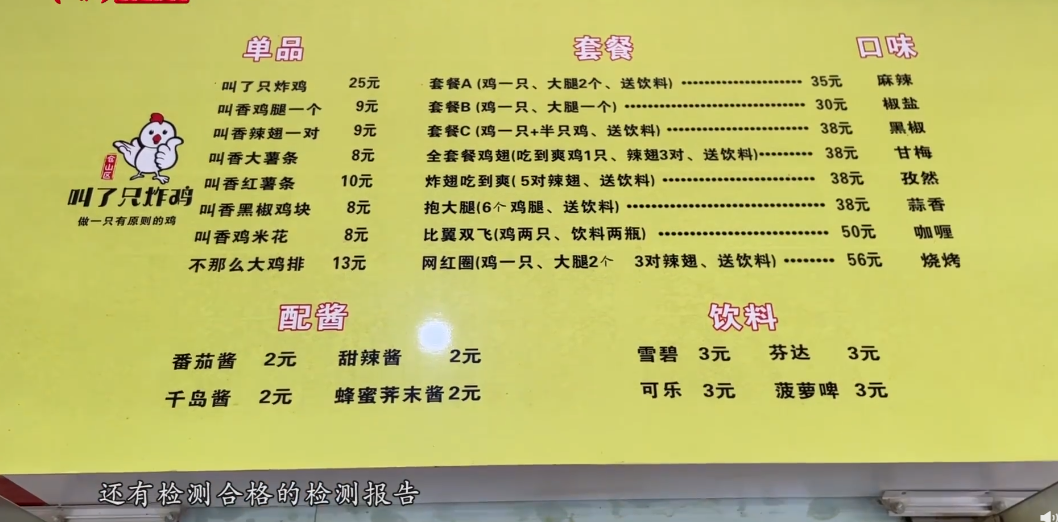 单品
叫了只炸鸡 25元
叫香鸡腿一个 9元
叫香辣翅一对 9元
叫香大薯条 8元
叫香红薯条 10元
叫香黑椒鸡块 8元
叫香鸡米花 8元
不那么大鸡排 13元
套餐
套餐A (鸡一只、大腿2个、送饮料) 35元
套餐B (鸡一只、大腿一个) 30元
套餐C (鸡一只+半只鸡、送饮料) 38元
全套餐鸡翅(吃到爽鸡1只、辣翅3对、送饮料) 38元
炸翅吃到爽( 5对辣翅、送饮料) 38元
抱大腿(6个鸡腿、送饮料) 38元
比翼双飞(鸡两只、饮料两瓶) 50元
网红圈(鸡一只、大腿2个 3对辣翅、送饮料) 56元
口味
麻辣
椒盐
黑椒
甘梅
孜然
蒜香
咖喱
烧烤
叫了只炸鸡
做一只有原则的鸡
配酱
番茄酱 2元 甜辣酱 2元
千岛酱 2元 蜂蜜荠末酱 2元
饮料
雪碧 3元 芬达 3元
可乐 3元 菠萝啤 3元
还有检测合格的检测报告